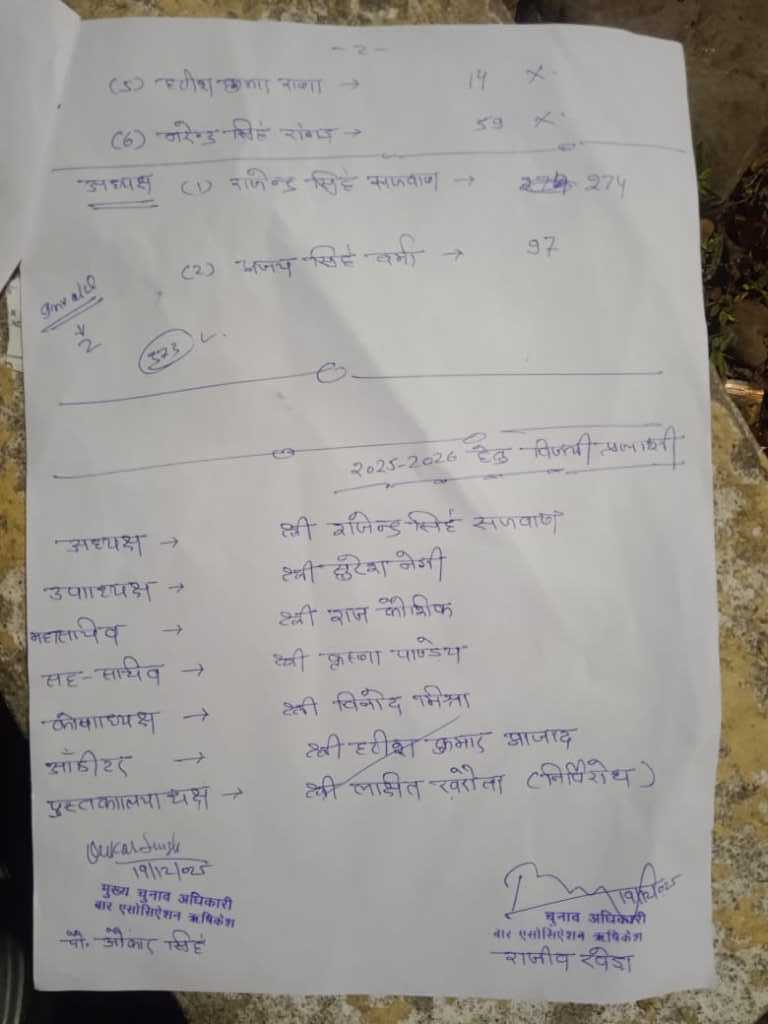 - 2 -
(5) हरीश कुमार राणा → 14 ×
(6) नरेन्द्र सिंह रांगड़ → 59 ×
अध्यक्ष (1) राजेन्द्र सिंह सजवाण → 274
(2) अजय सिंह वर्मा → 97
2
373
2025-2026 हेतु विजयी प्रत्याशी
अध्यक्ष → श्री राजेन्द्र सिंह सजवाण
उपाध्यक्ष → श्री सुरेश नेगी
महासचिव → श्री राज कौशिक
सह-सचिव → श्री कृष्णा पाण्डेय
कोषाध्यक्ष → श्री विनोद मिश्रा
ऑडीटर → श्री हरीश कुमार आजाद
पुस्तकालयाध्यक्ष → श्री लक्षित खरोला (निर्विरोध)
19/12/025
मुख्य चुनाव अधिकारी
बार एसोसिऐशन ऋषिकेश
चुनाव अधिकारी
बार एसोसिऐशन ऋषिकेश
ओंकार सिंह
राजीव